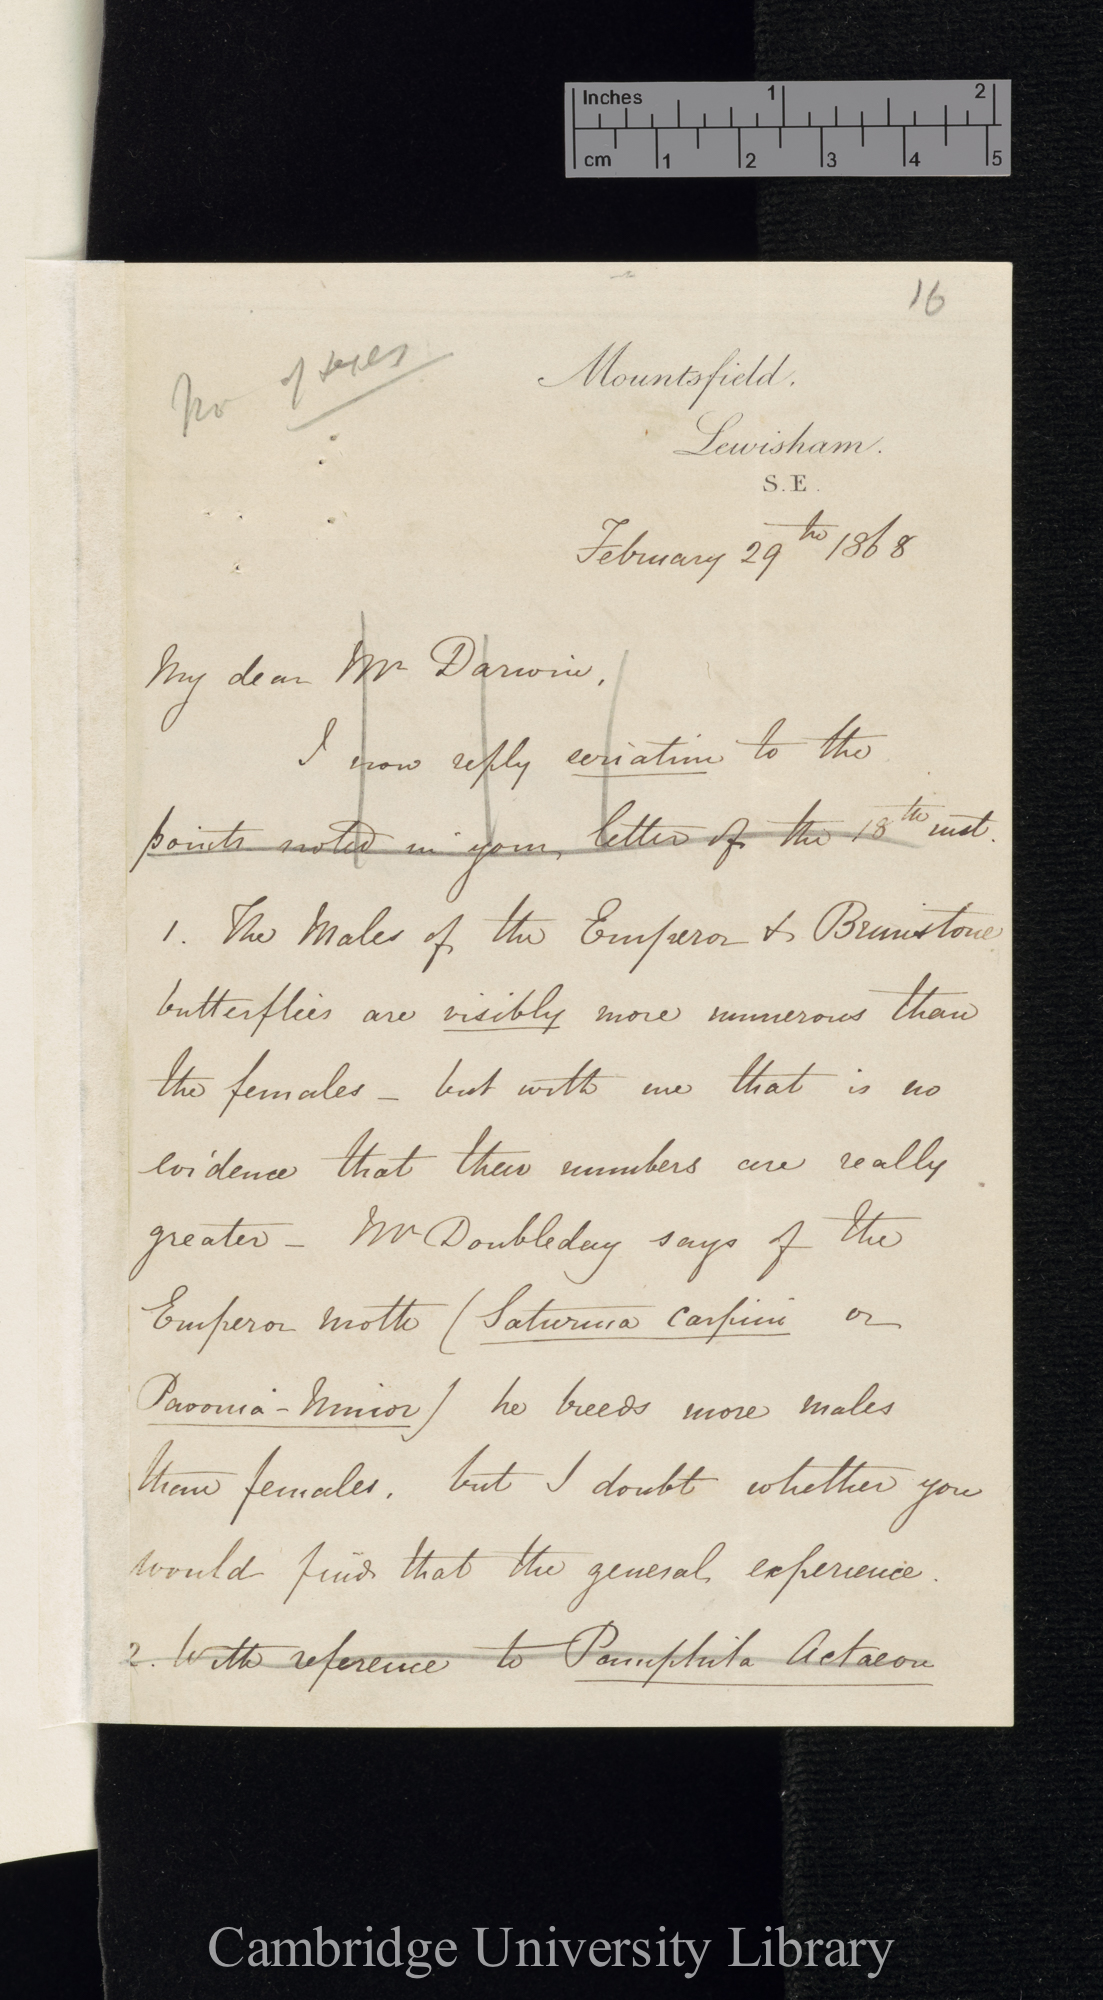 Inches 1 2
cm 1 2 3 4 5
16
No of sexes
Mountsfield.
Lewisham.
S.E.
February 29th 1868
My dear Mr Darwin,
I now reply seriatim to the
points noted in your letter of the 18th inst.
1. The Males of the Emperor & Brimstone
butterflies are visibly more numerous than
the females – but with me that is no
evidence that their numbers are really
greater – Mr Doubleday says of the
Emperor moth (Saturnia carpini or
Pavonia-Minor) he breeds more males
than females. but I doubt whether you
would find that the general experience.
2. With reference to Pamphila Actaeon
Cambridge University Library